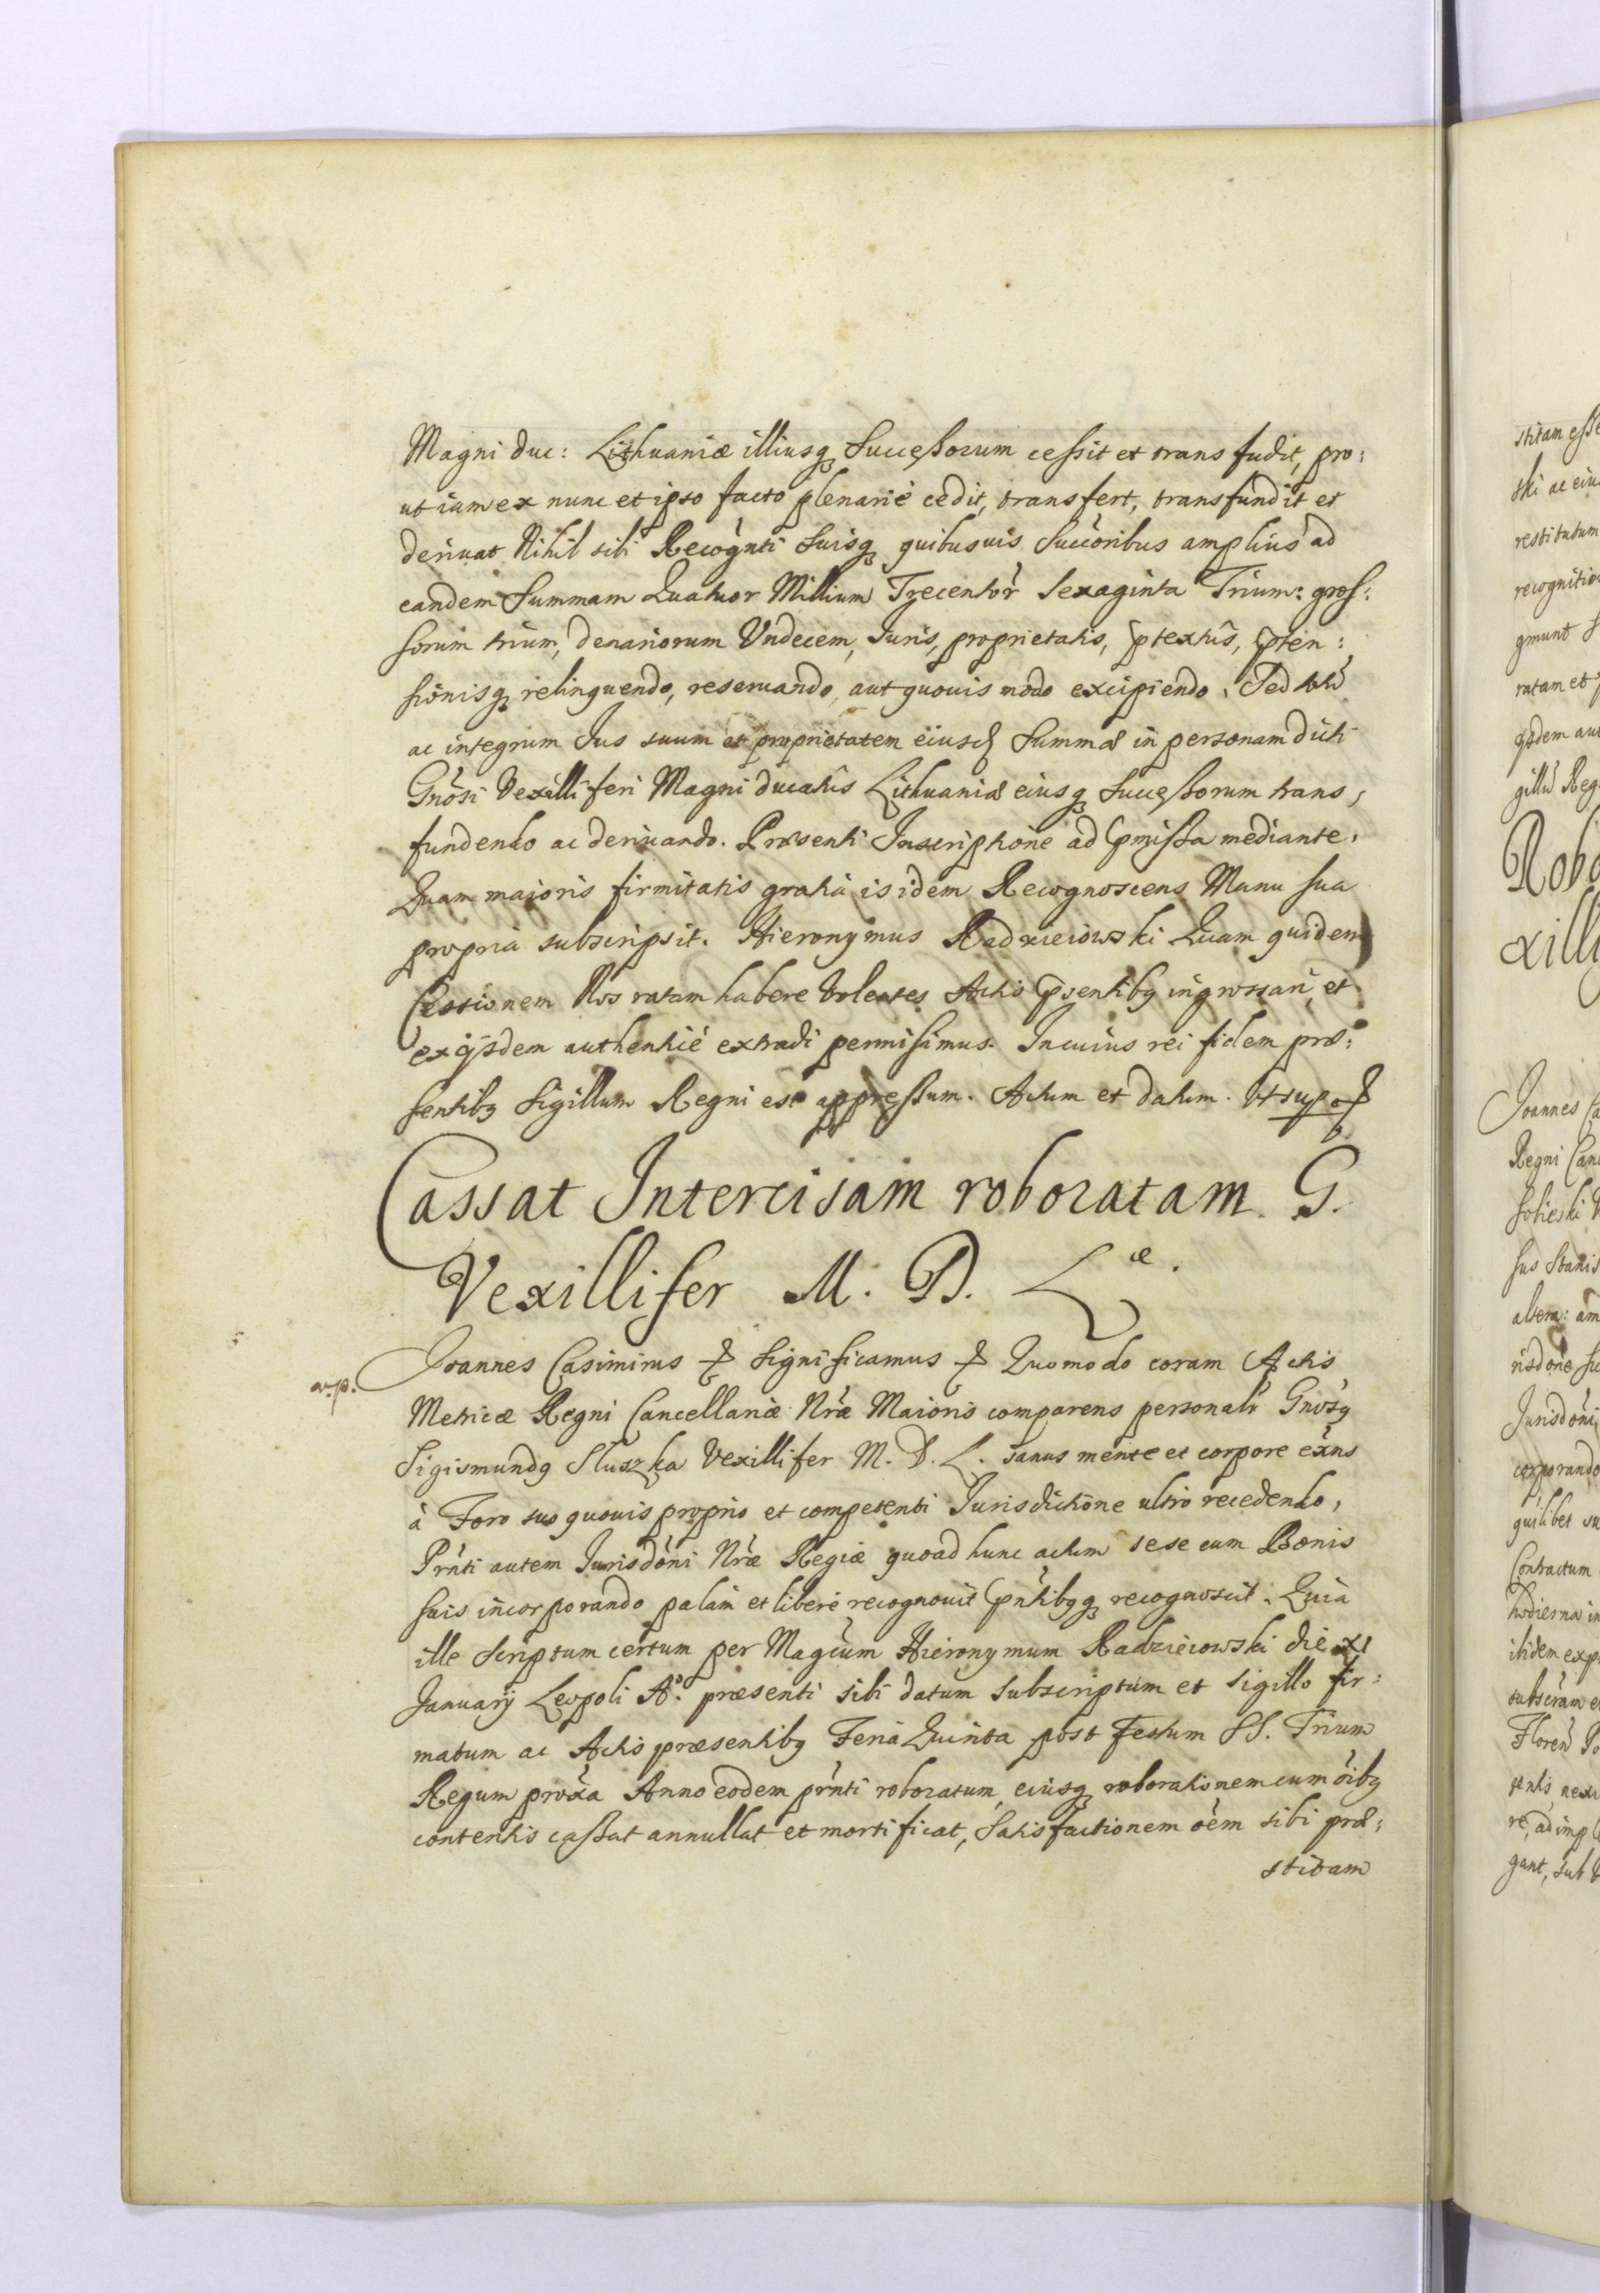 Magni Duc: Lithuaniæ illiusq; Successorum cessit et transfudit, pro:
ut iam ex nunc et ipso facto plenarié cedit, transfert, transfundit et
deriuat Nihil sibi Recognti Suisq; quibusuis Succoribus amplius ad
eandem Summam Quatuor Millium Trecentor Sexaginta Trium: gros:
sorum trium, denariorum Vndecem, Juris, proprietatis, ptextûs, pten:
sionisq; relinquendo, reseruando, aut quouis modo excipiendo. Sed totũ
ac integrum Jus suum et proprietatem eiusd Summæ in personam dicti
Gnosi Vexilliferi Magni Ducatûs Lithuaniæ eiusq; Successorum trans,
fundendo ac deriuando. Præsenti Inscriptione ad pmissa mediante.
Quam maioris firmitatis gratiâ is idem Recognoscens Manu sua
propria subscripsit. Hieronymus Radzieiowski Quam quidem
Cessionem Nos ratam habere Volentes Actis psentibq ingrossari, et
ex ijsdem authenticé extradi permisimus. In cuius rei fidem præ:
sentibq Sigillum Regni est appressum. Actum et datum. Ut sup. &
Cassat Intercisam roboratam. G.
Vexillifer M. D. Læ.
a.p.
Joannes Casimirus & Significamus & Quomodo coram Actis
Metricæ Regni Cancellariæ Nræ Maioris comparens personalr Gnosq
Sigismundq Sluszka Vexillifer M. D. L. sanus mente et corpore exns
à Foro suo quouis proprio et competenti Jurisdictione ultro recedendo,
Prnti autem Jurisdoni Nræ Regiæ quoad hunc actum sese cum Bonis
suis incorporando palam et liberé recognouit pntibqq; recognoscit. Quia
ille Scriptum certum per Magcum Hieronymum Radzieiowski die XI
Januarij Leopoli Aº. præsenti sibi datum subscriptum et sigillo fir:
matum ac Actis præsentibq Feria Quinta post Festum SS. Trium
Regum proxa Anno eodem prnti roboratum, eiusq; roborationem cum oibq
contentis cassat annullat et mortificat, Satisfactionem oem sibi præ:
stitam
stitam esse
restitutum
recognition
ratam et
Robo
xilli
Joannes Ca
Regni Can
Sobieski
sus Stanis
Jurisdoni
quilibet su
Contractum
hodierna in
itidem exp
gant, sub